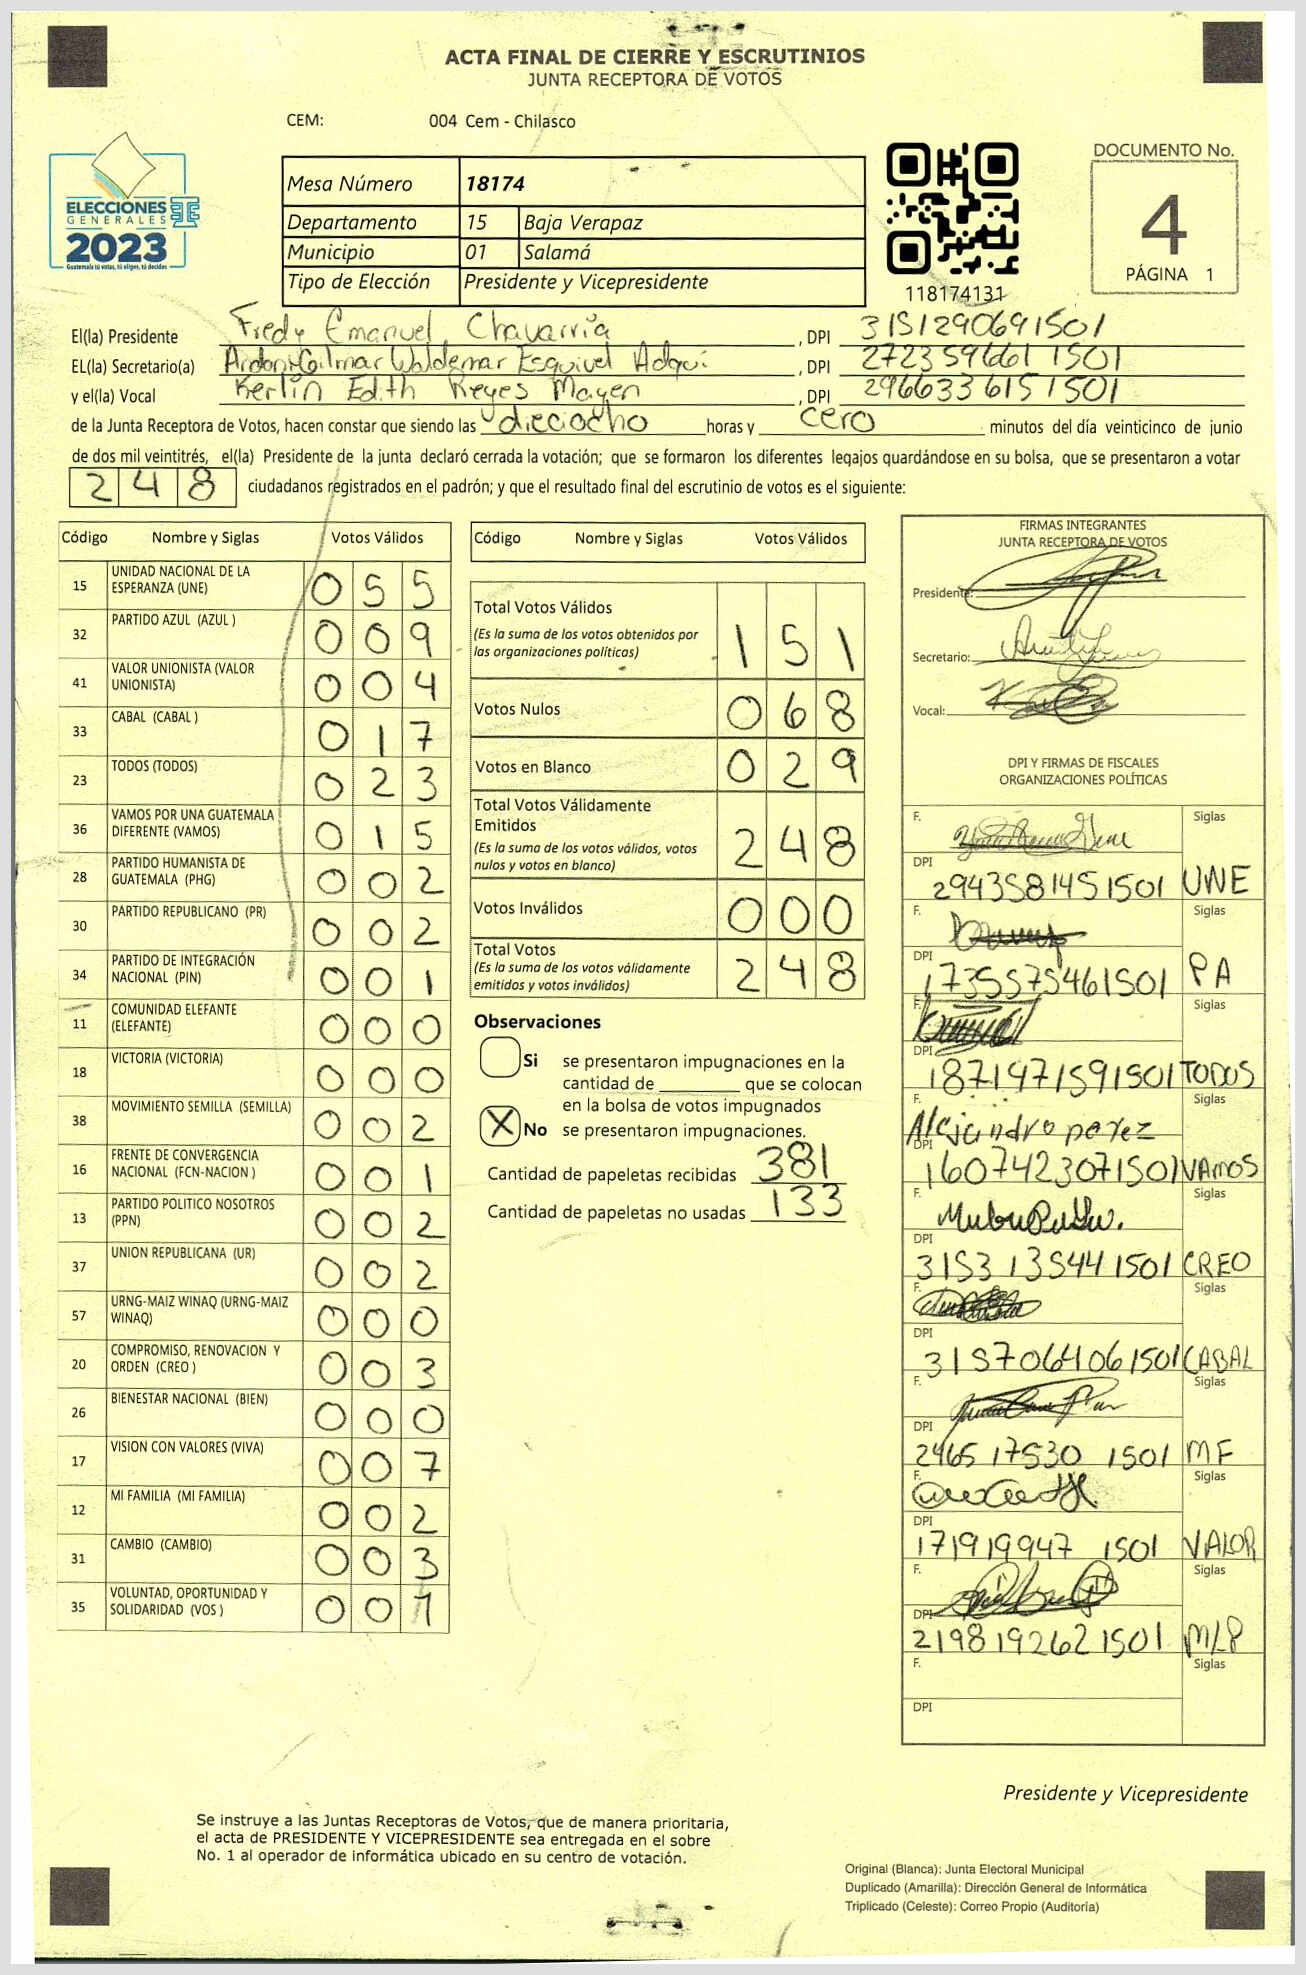 ACTA FINAL DE CIERRE Y ESCRUTINIOS
JUNTA RECEPTORA DE VOTOS
CEM: 004 Cem - Chilasco
ELECCIONES
GENERALES
2023
Guatemala tú votas, tú eliges, tú decides
Mesa Número 18174
Departamento 15 Baja Verapaz
Municipio 01 Salamá
Tipo de Elección Presidente y Vicepresidente
118174131
DOCUMENTO No.
4
PÁGINA 1
El(la) Presidente Fredy Emanuel Chavarría , DPI 3151290691501
EL(la) Secretario(a) Waldemar Esquivel , DPI 2723596611501
y el(la) Vocal Kerlin Edith Reyes Mayen , DPI 2966336151501
de la Junta Receptora de Votos, hacen constar que siendo las dieciocho horas y cero minutos del día veinticinco de junio
de dos mil veintitrés, el(la) Presidente de la junta declaró cerrada la votación; que se formaron los diferentes legajos quardándose en su bolsa, que se presentaron a votar
248 ciudadanos registrados en el padrón; y que el resultado final del escrutinio de votos es el siguiente:
Código Nombre y Siglas Votos Válidos
15 UNIDAD NACIONAL DE LA ESPERANZA (UNE) 055
32 PARTIDO AZUL (AZUL ) 009
41 VALOR UNIONISTA (VALOR UNIONISTA) 004
33 CABAL (CABAL ) 017
23 TODOS (TODOS) 023
36 VAMOS POR UNA GUATEMALA DIFERENTE (VAMOS) 015
28 PARTIDO HUMANISTA DE GUATEMALA (PHG) 002
30 PARTIDO REPUBLICANO (PR) 002
34 PARTIDO DE INTEGRACIÓN NACIONAL (PIN) 001
11 COMUNIDAD ELEFANTE (ELEFANTE) 000
18 VICTORIA (VICTORIA) 000
38 MOVIMIENTO SEMILLA (SEMILLA) 002
16 FRENTE DE CONVERGENCIA NACIONAL (FCN-NACION ) 001
13 PARTIDO POLITICO NOSOTROS (PPN) 002
37 UNION REPUBLICANA (UR) 002
57 URNG-MAIZ WINAQ (URNG-MAIZ WINAQ) 000
20 COMPROMISO, RENOVACION Y ORDEN (CREO ) 003
26 BIENESTAR NACIONAL (BIEN) 000
17 VISION CON VALORES (VIVA) 007
12 MI FAMILIA (MI FAMILIA) 002
31 CAMBIO (CAMBIO) 003
35 VOLUNTAD, OPORTUNIDAD Y SOLIDARIDAD (VOS ) 001
Código Nombre y Siglas Votos Válidos
Total Votos Válidos 151
(Es la suma de los votos obtenidos por las organizaciones políticas)
Votos Nulos 068
Votos en Blanco 029
Total Votos Válidamente Emitidos 248
(Es la suma de los votos válidos, votos nulos y votos en blanco)
Votos Inválidos 000
Total Votos 248
(Es la suma de los votos válidamente emitidos y votos inválidos)
Observaciones
Si se presentaron impugnaciones en la
cantidad de ________ que se colocan
en la bolsa de votos impugnados
X No se presentaron impugnaciones.
Cantidad de papeletas recibidas 381
Cantidad de papeletas no usadas 133
FIRMAS INTEGRANTES
JUNTA RECEPTORA DE VOTOS
Presidente:
Secretario:
Vocal:
DPI Y FIRMAS DE FISCALES
ORGANIZACIONES POLÍTICAS
F. Siglas
DPI 2943581451501 UNE
F. Siglas
DPI 1735575461501 PA
F. Siglas
DPI 1871971591501 TODOS
F. Alejandro perez Siglas
DPI 1607423071501 VAMOS
F. Siglas
DPI 3153135441501 CREO
F. Siglas
DPI 3157064061501 CABAL
F. Siglas
DPI 2465 17530 1501 MF
F. Siglas
DPI 171919947 1501 VALOR
F. Siglas
DPI 2198192621501 MLP
F. Siglas
DPI
Presidente y Vicepresidente
Se instruye a las Juntas Receptoras de Votos, que de manera prioritaria,
el acta de PRESIDENTE Y VICEPRESIDENTE sea entregada en el sobre
No. 1 al operador de informática ubicado en su centro de votación.
Original (Blanca): Junta Electoral Municipal
Duplicado (Amarilla): Dirección General de Informática
Triplicado (Celeste): Correo Propio (Auditoría)